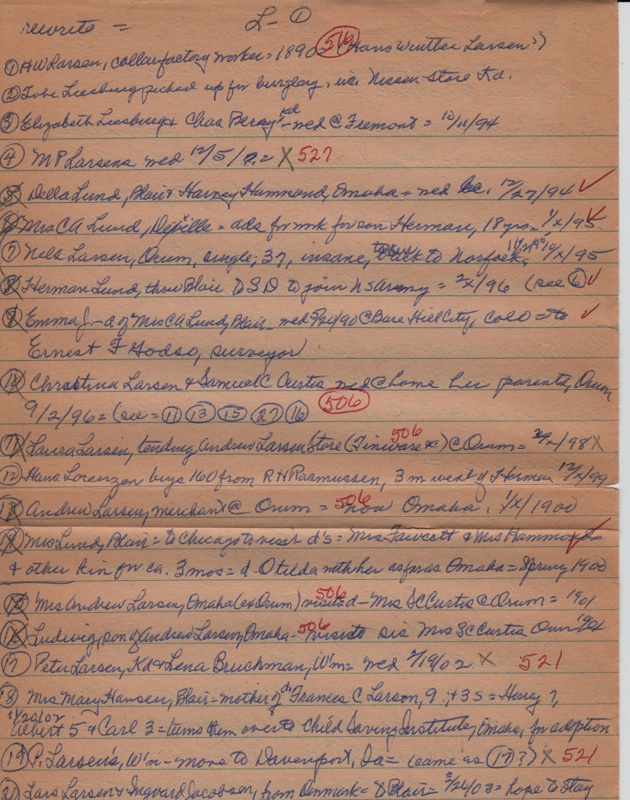 rewrite = L-①
① HW Larsen, collar factory worker = 1890 = (Hans Winther Larsen?) 506
② Tobe Liesburg picked up for burglary, via Nissen store Kd.
③ Elizabeth Liesburg Kd & Chas Beray - wed @ Fremont = 12/11/94
④ M P Larsens wed 12/5/22 X 527
⑤ Della Lund, Blair & Harvey Hammond, Omaha = wed 12/27/94 ✓
⑥ Mrs CA Lund, = ads for work for son Herman, 18 yrs = 1/x/95 ✓
⑦ Nels Larsen, Orum, single, 37, insane, back to Norfolk, /x/95
⑧ Herman Lund, thru Blair to join army = 2/x/96 (see ⑥) ✓
⑨ Emma J - d of Mrs CA Lund, Blair - wed @ Bare Hill City, Colo = to ✓
Ernest F Godso, surveyor
⑩ Christina Larsen & Samuel C Curtis wed @ home her parents, Orum
9/2/96 = (see = ⑪ ⑬ ⑮ ⑰ ⑯ 506
⑪ Larsen, tending Andrew Larsen Store (Tinware &c) @ Orum = /x/98 X 506
⑫ Hans Lorenzen buys 160 from R H Rasmussen, 3 m west of Herman 12/x/99
⑬ Andrew Larsen, merchant @ Orum = 506 now Omaha, 1/x/1900
⑭ Mrs Lund, Blair = to Chicago to visit d's = Mrs Fawcett & Mrs Hammond ✓
& other kin for ca. 3 mos = d Oteeda with her as far as Omaha = Spring 1900
⑮ Mrs Andrew Larsen, Omaha (ex Orum) visits d - Mrs SC Curtis @ Orum = 1901 506
⑯ Ludwig, son of Andrew Larsen, Omaha - 506 visits sis Mrs SC Curtis Orum
⑰ Peter Larsen, Kd & Lena Bruchman, W'n = wed /19/02 X 521
⑱ Mrs Mary Hansen, Blair = mother of d Frances C Larson, 9, + 3 s = Henry 7,
11/20/02 Robert 5 & Carl 3 = turns them over to Child Saving Institute, Omaha, for adoption
⑲ P. Larsen's, W'n - move to Davenport, Ia = (same as ⑰?) X 521
Lars Larsen & Ingvard Jacobsen, from Denmark = to Blair = 3/26/03 = hope to stay